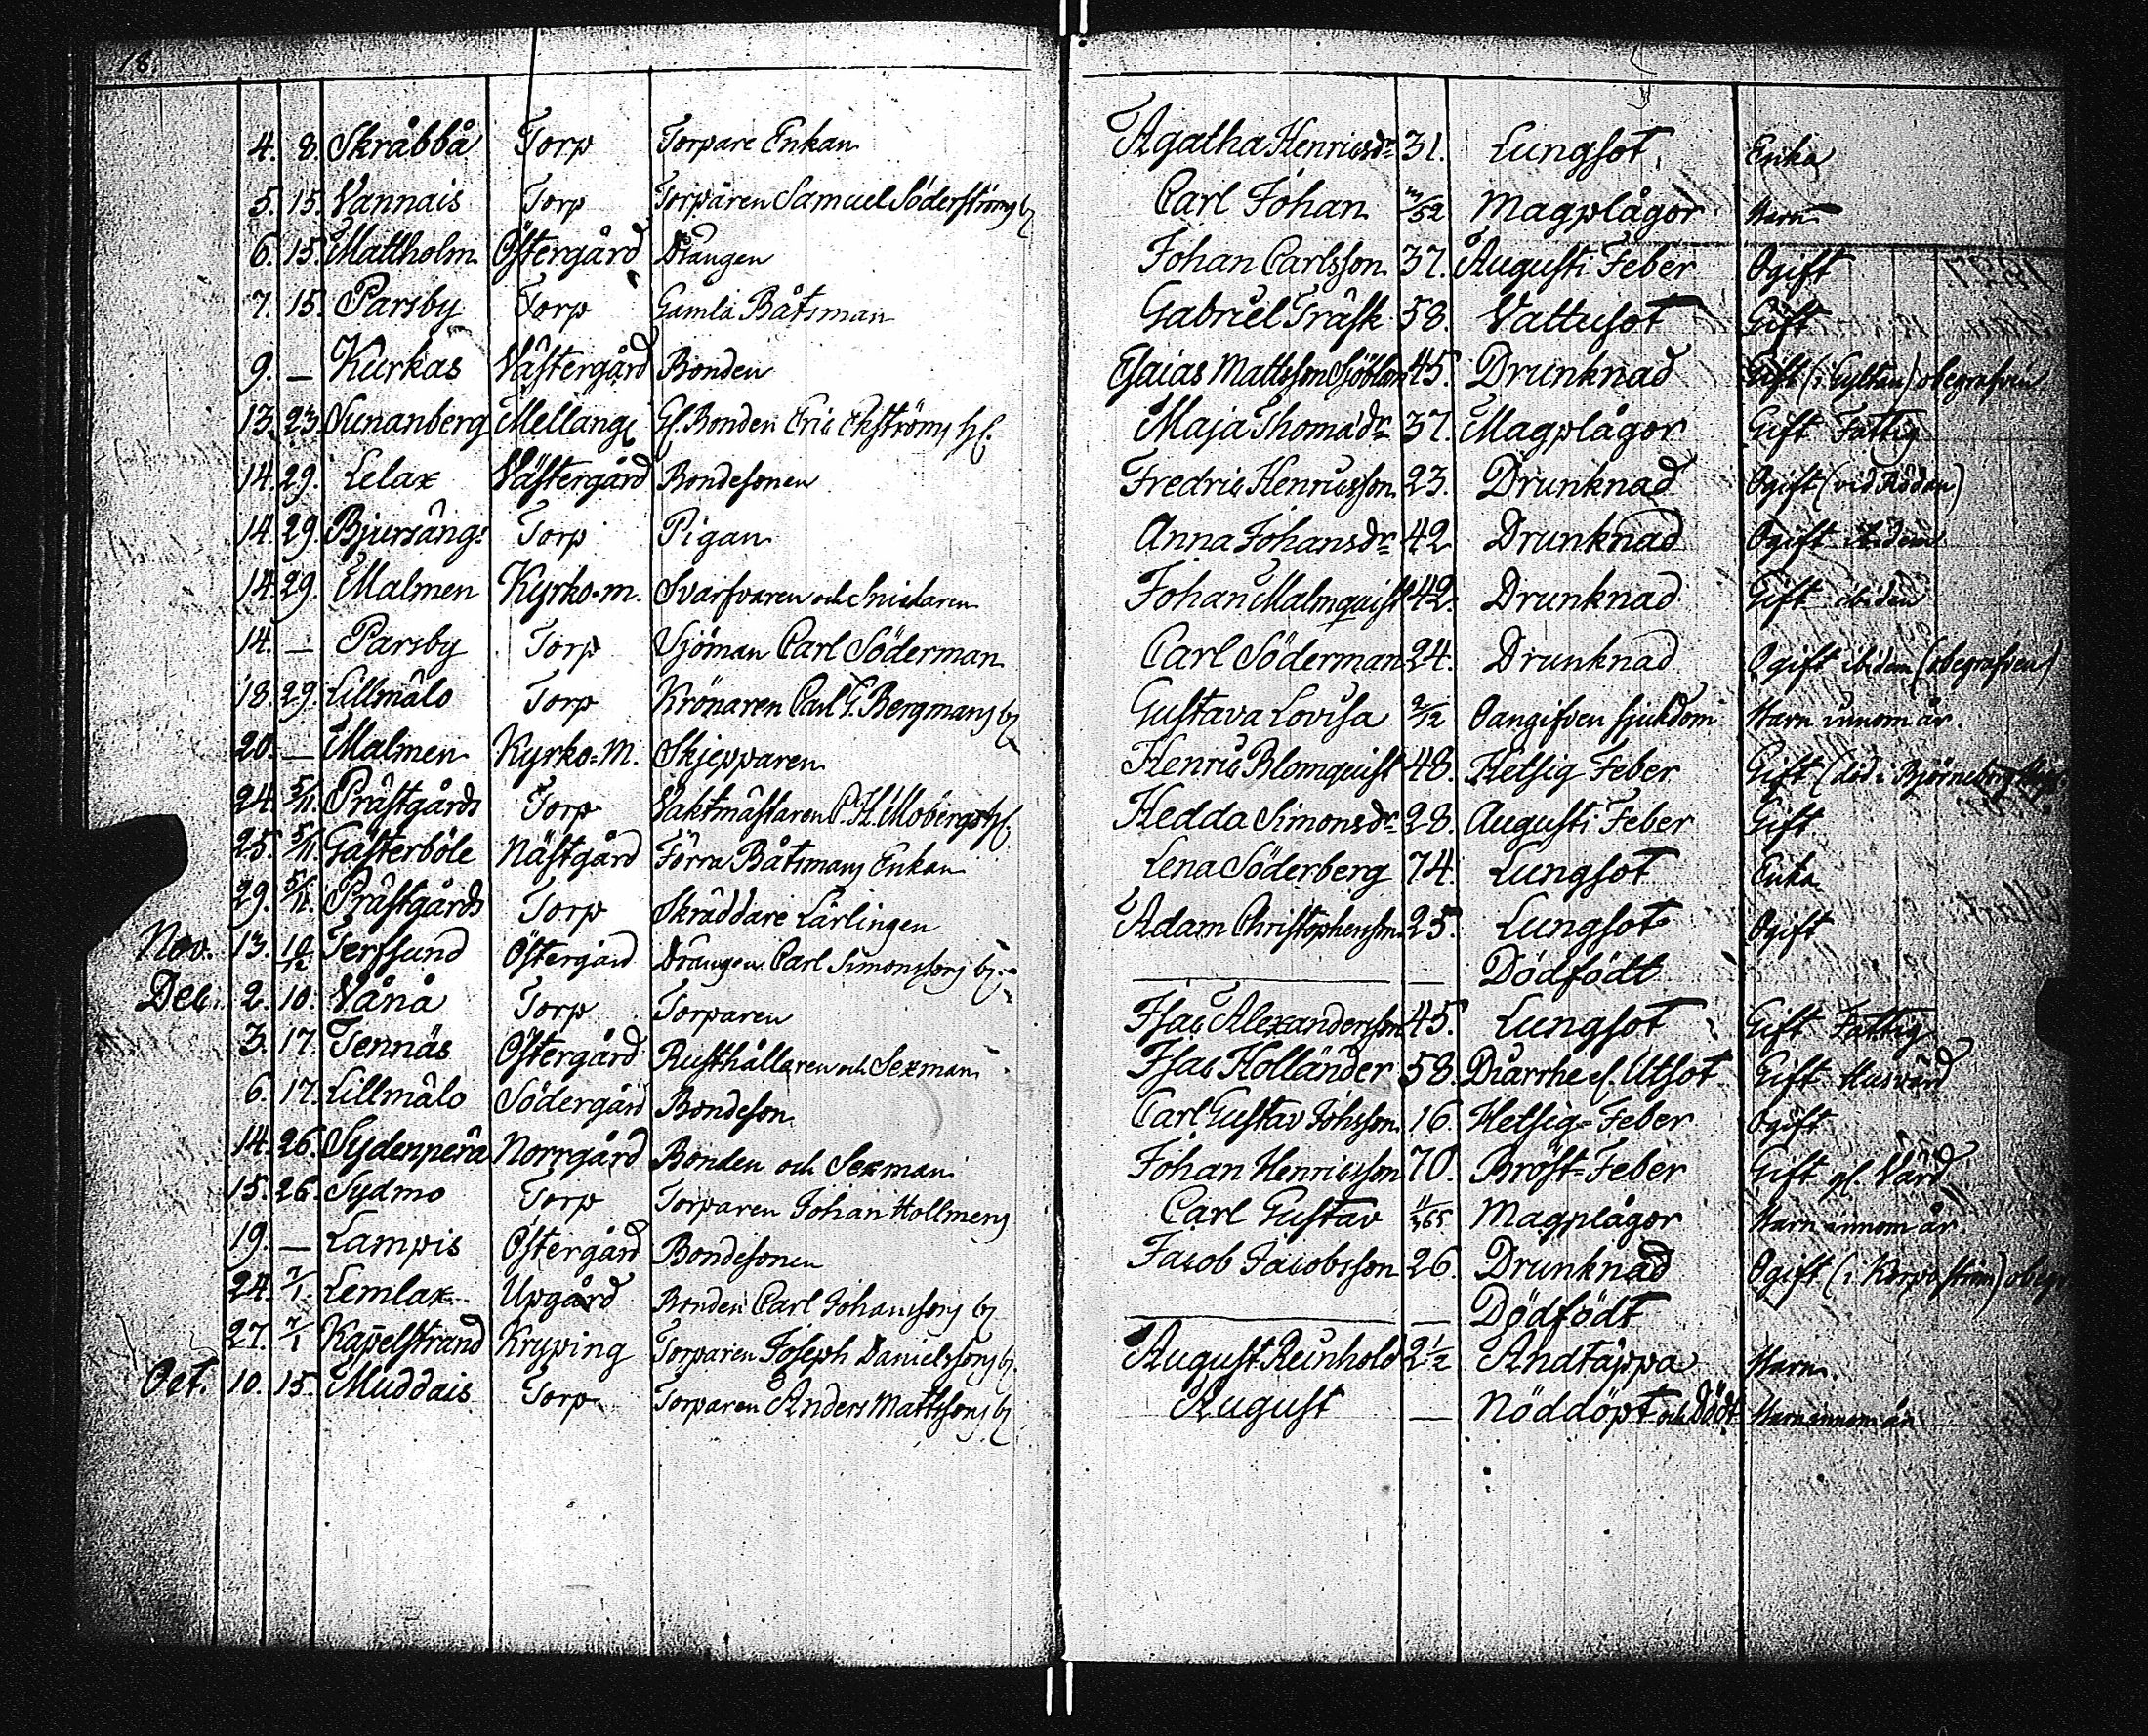 18.
4. 8. Skråbbå Torp Torpare Enkan Agatha Henricsdr 31. Lungsot Enka
5. 15. Vannais Torp Torparen Samuel Söderströms bj Carl Johan /52 Magplågor Barn
6. 15. Mattholm Östergård Drängen Johan Carlsson 37. Augusti Feber Ogift
7. 15. Parsby Torp Gamla Båtsman Gabriel Träsk 58. Vattusot Gift
9. — Kurkas Västergård Bonden Esaias Mattsson Sjöblom 45. Drunknad Gift (i Gyltan) obegrafven
13. 23. Sunanberg Mellang Gl. Bonden Eric Ekströms hl. Maja Thomadr 37. Magplågor Gift Fattig
14. 29. Lelax Västergård Bondesonen Fredric Henricsson 23. Drunknad Ogift (vid Rödan)
14. 29. Bjursängs Torp Pigan Anna Johansdr 42 Drunknad Ogift ibidem
14. 29. Malmen Kyrko-m. Svarfvaren och Snickaren Johan Malmquist 42. Drunknad Gift ibidem
14. — Parsby Torp Sjöman Carl Söderman Carl Söderman 24. Drunknad Ogift ibidem (obegrafven)
18. 29. Lillmälo Torp Krönaren Carl G. Bergmans bj Gustava Lovisa 2/12 Oangifven sjukdom Barn innom år.
20. — Malmen Kyrko-M. Skjepparen Henric Blomquist 48. Hetsig Feber Gift (död i Björneborg
24. 5/11. Prästgårds Torp Vaktmästaren P. H. Mobergs hl. Hedda Simonsdr 28. Augusti Feber Gift
25. 5/11. Gästerböle Nästgård Förra Båtsmans Enkan Lena Söderberg 74. Lungsot Enka
29. 5/11. Prästgårds Torp Skräddare Lärlingen Adam Christophersson 25. Lungsot Ogift
Nov. 13. 10/12 Terfsund Östergård Drängen Carl Simonssons bj. — — Dödfödt
Dec. 2. 10. Vånå Torp Torparen Isac Alexandersson 45. Lungsot Gift Fattig
3. 17. Tennäs Östergård Rusthållaren och Sexman Isac Holländer 58. Diarrhe el. Utsot Gift Husvärd
6. 17. Lillmälo Södergård Bondeson Carl Gustav Johsson 16. Hetsig-Feber Ogift
14. 26. Sydenperä Norrgård Bonden och Sexman Johan Henricsson 70. Bröst-Feber Gift gl. Värd
15. 26. Sydmo Torp Torparen Johan Hollmens Carl Gustav 11/365 Magplågor Barn innom år.
19. — Lampis Östergård Bondesonen Jacob Jacobsson 26. Drunknad Ogift (i Korpoström)
24. 7/1. Lemlax Upgård Bonden Carl Johanssons bj — — Dödfödt
27. 7/1 Kapellstrand Kryping Torparen Joseph Danielssons bj. August Reinhold 2 1/2 Andtäppa Barn
Oct. 10. 15. Muddais Torp Torparen Anders Mattssons bj August — Nöddöpt och Död Barn innom år